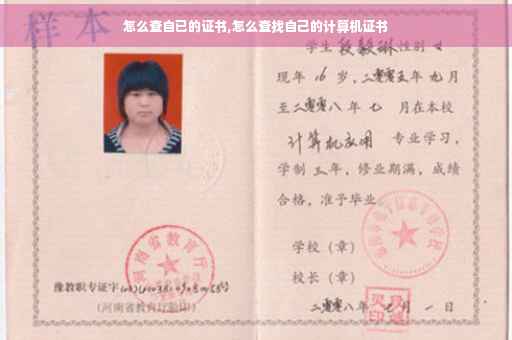 怎么查自已的证书,怎么查找自己的计算机证书
样本
学生段毅琳性别女
现年 16 岁,二零零五年九月
至二零零八年七 月在本校
计算机应用 专业学习,
学制三年,修业期满,成绩
合格,准予毕业
学校(章)
校长(章)
二零零八年七月一日
河南省教育厅
豫教职专证字
(河南省教育厅验印)